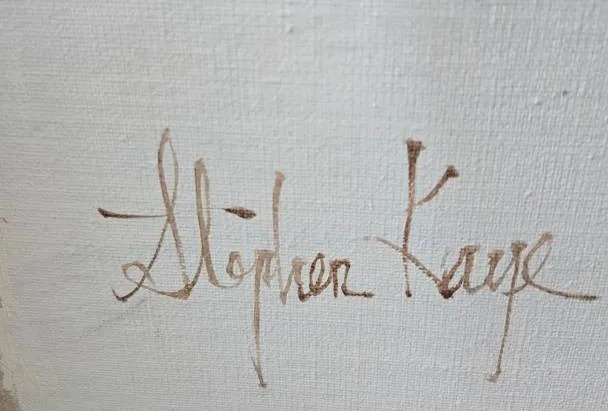 Stephen Kaye